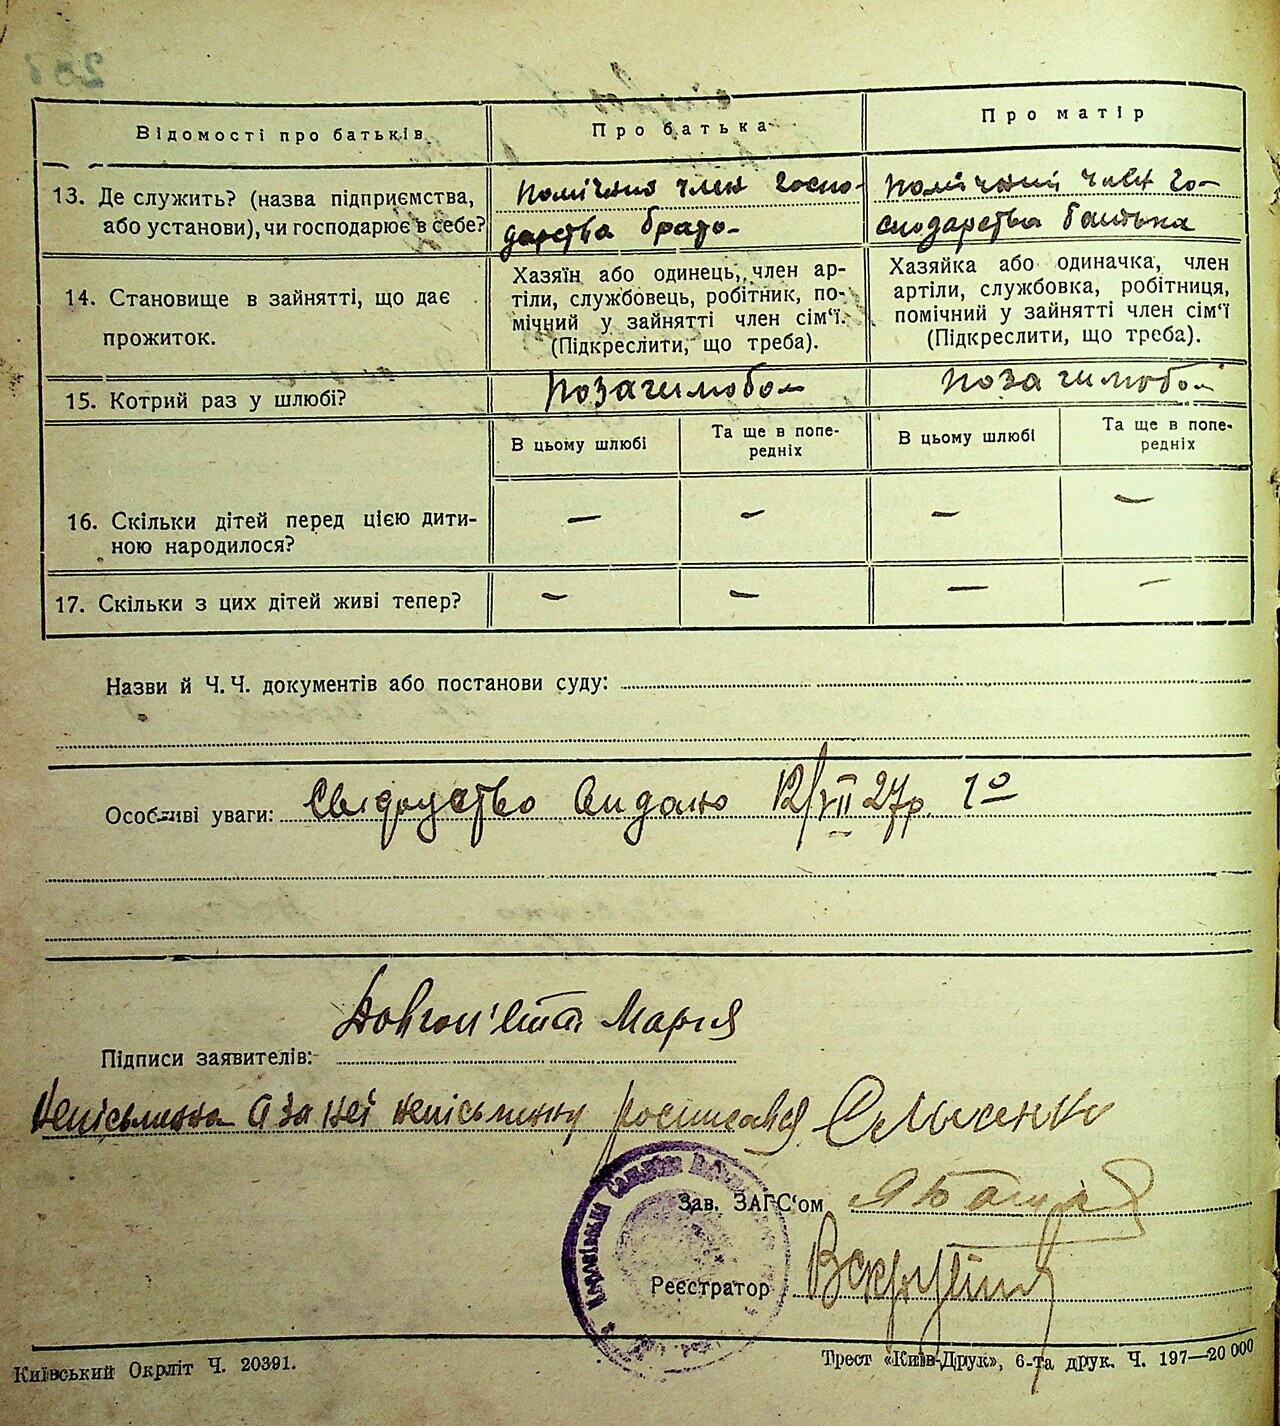 Відомості про батьків
Про батька
Про матір
13. Де служить? (назва підприємства,
або установи), чи господарює в себе?
помічник член госпо-
дарства брато-
помічний член го-
сподарства батька
14. Становище в зайнятті, що дає
прожиток.
Хазяїн або одинець, член ар-
тіли, службовець, робітник, по-
мічний у зайнятті член сім'ї.
(Підкреслити, що треба).
Хазяйка або одиначка, член
артіли, службовка, робітниця,
помічний у зайнятті член сім'ї
(Підкреслити, що треба).
15. Котрий раз у шлюбі?
поза шлюбом
поза шлюбом
В цьому шлюбі
Та ще в попе-
редніх
В цьому шлюбі
Та ще в попе-
редніх
16. Скільки дітей перед цією дити-
ною народилося?
— — — —
17. Скільки з цих дітей живі тепер?
— — — —
Назви й Ч. Ч. документів або постанови суду:
Особливі уваги: Свідоцтво видано 12/VII 27р.
Довгоп'ята Мария
Підписи заявителів:
Неписьменна а за неї неписьменну росписався
Зав. ЗАГС'ом
Реєстратор
Київський Окрліт Ч. 20391.
Трест «Київ-Друк», 6-та друк. Ч. 197—20 000